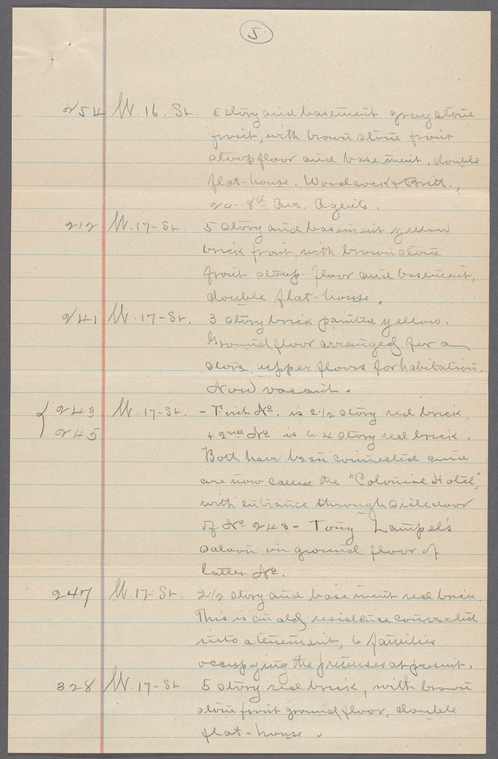 5
254 W. 16. St. 5 story and basement gray stone
front, with brown stone front
stoop floor and basement, double
flat-house. Woodcock & Britt.,
20-8th Ave. Agents.
212 W. 17-St. 5 story and basement yellow
brick front, with brown stone
front stoop floor and basement,
double flat-house.
241 W. 17-St. 3 story brick painted yellow.
Ground floor arranged for a
store, upper floors for habitation.
Now vacant.
243 W. 17-St. - First No. is 2½ story red brick,
245 + 2nd No. is a 4 story red brick.
Both have been connected and
are now called the "Colonial Hotel",
with entrance through side door
of No. 243 - Tony Lampel's
saloon on ground floor of
latter No.
247 W. 17-St. 2½ story and basement red brick.
This is an old residence converted
into a tenement, 6 families
occupying the premises at present.
328 W. 17-St. 5 story red brick, with brown
stone front ground floor, double
flat-house.